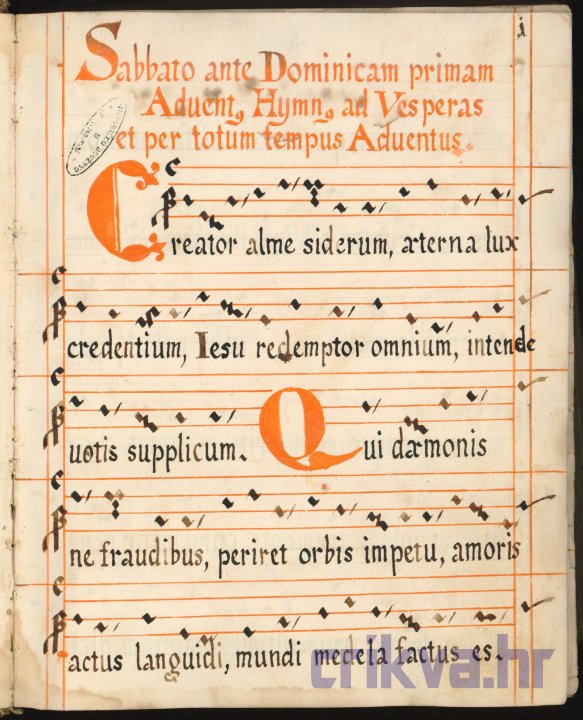 i
Sabbato ante Dominicam primam
Advent9 Hymn9 ad Vesperas
et per totum tempus Adventus.
Creator alme siderum, æterna lux
credentium, Iesu redemptor omnium, intende
uotis supplicum. Qui dæmonis
ne fraudibus, periret orbis impetu, amoris
actus languidi, mundi medela factus es.
crikva.hr